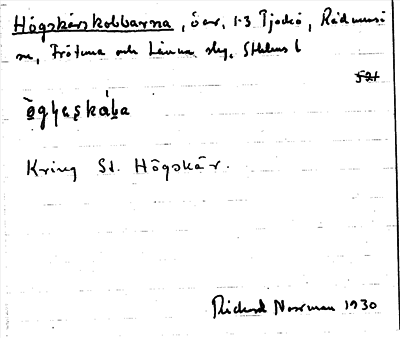 Högskärskobbarna, öar, 1-3 Tjockö, Rådmansö
sn, Frötuna och Länna slg, Sthlms l
521
Kring St. Högskär.
Rickard Norrman 1930